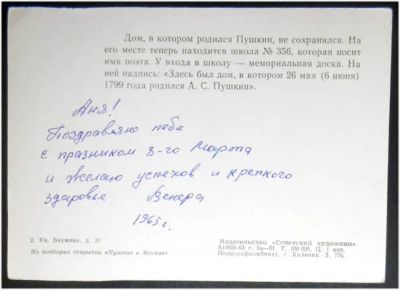 Дом, в котором родился Пушкин, не сохранился. На
его месте теперь находится школа № 356, которая носит
имя поэта. У входа в школу — мемориальная доска. На
ней надпись: «Здесь был дом, в котором 26 мая (6 июня)
1799 года родился А. С. Пушкин».
Аня!
Поздравляю тебя
с празником 8-го Марта
и желаю успехов и крепкого
здоровье. Венера
1965 г.
2. Ул. Баумана, д. 10
Из подборки открыток «Пушкин в Москве»
Издательство «Советский художник»
Полиграфкомбинат, г. Калинин